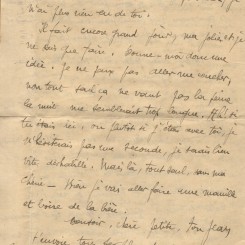 n'ai plus rien eu de toi.
Il fait encore grand jour, ma jolie et je
ne sais que faire. Donne-moi donc une
idée. Je ne puis pas aller me coucher,
non tout ça ne vaut pas la peine
la nuit me semblerait trop longue. Ah! si
tu étais ici, ou plutôt si j'étais avec toi, je
n'hésiterais pas une seconde, je serais bien
vite déshabillé. Mais là, tout seul, sans ma
chérie - Non je vais aller faire une manille
et boire de la bière.
Bonsoir, chère petite, ton Jean